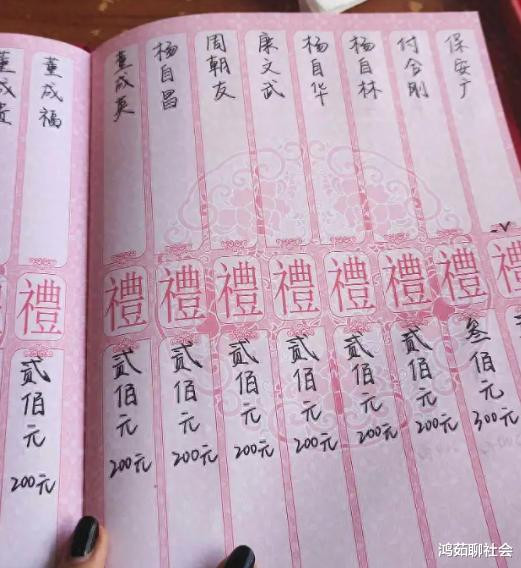 保安广
禮
叁佰元
300元
付合刚
禮
贰佰元
200元
杨自林
禮
贰佰元
200元
杨自华
禮
贰佰元
200元
康文武
禮
贰佰元
200元
周朝友
禮
贰佰元
200元
杨自昌
禮
贰佰元
200元
董成英
禮
贰佰元
200元
董成福
禮
贰佰元
200元
董成贵
鸿茹聊社会